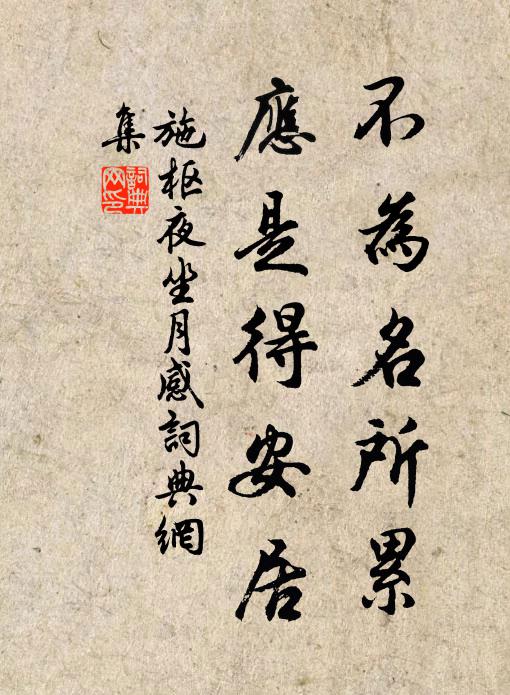 不為名所累
應是得安居
施枢夜坐月感詞典網
集
詞典
网印